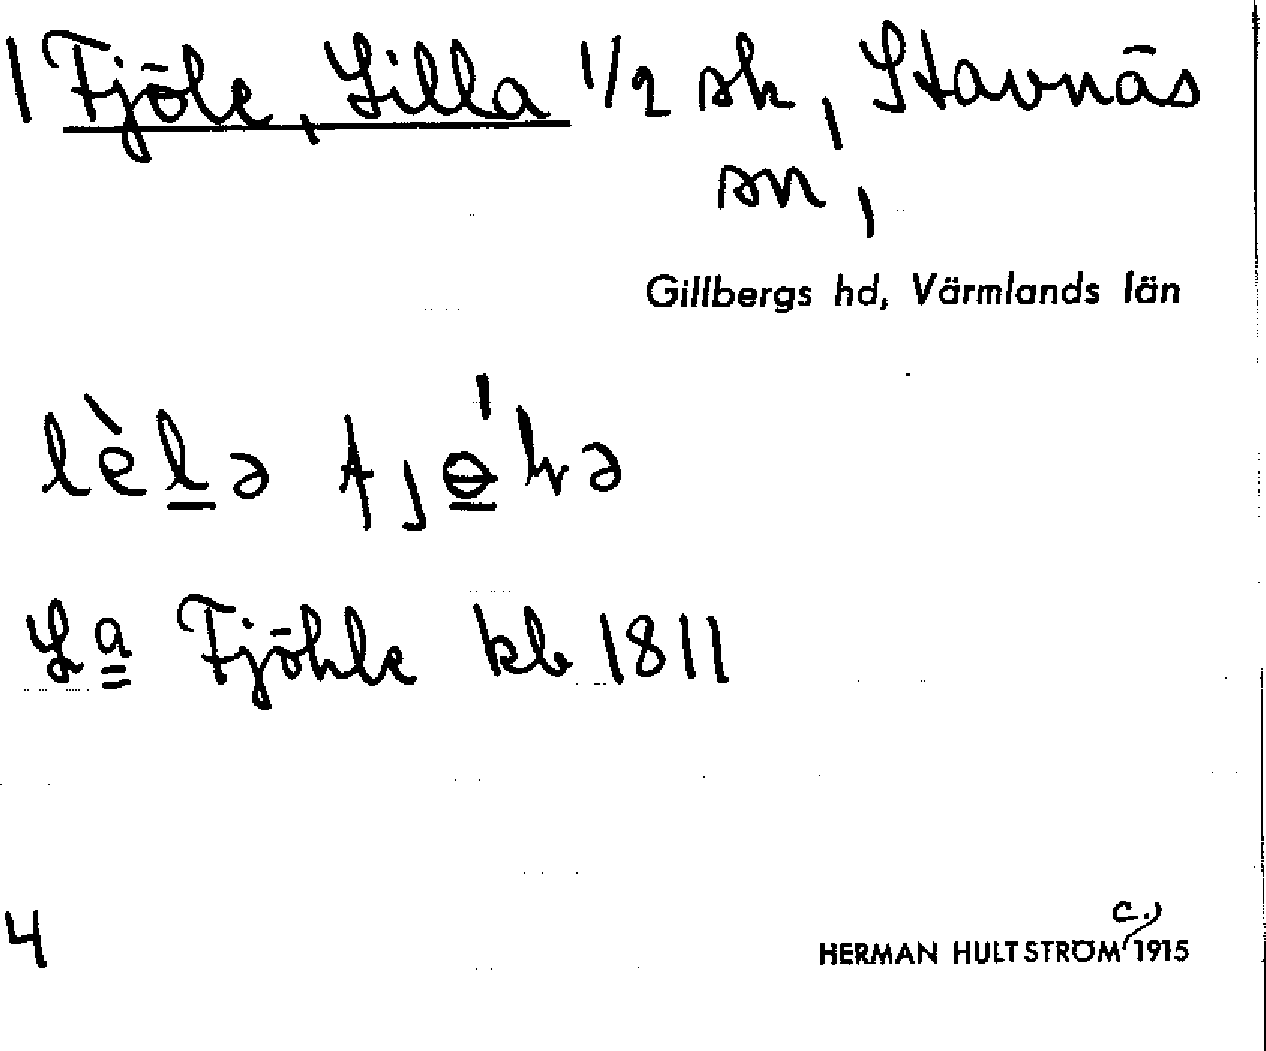 1 Fjöle, Lilla 1/2 sk, Stavnäs
sn,
Gillbergs hd, Värmlands län
lèlə
La Fjöhle kb 1811
4
c.,
HERMAN HULTSTRÖM 1915